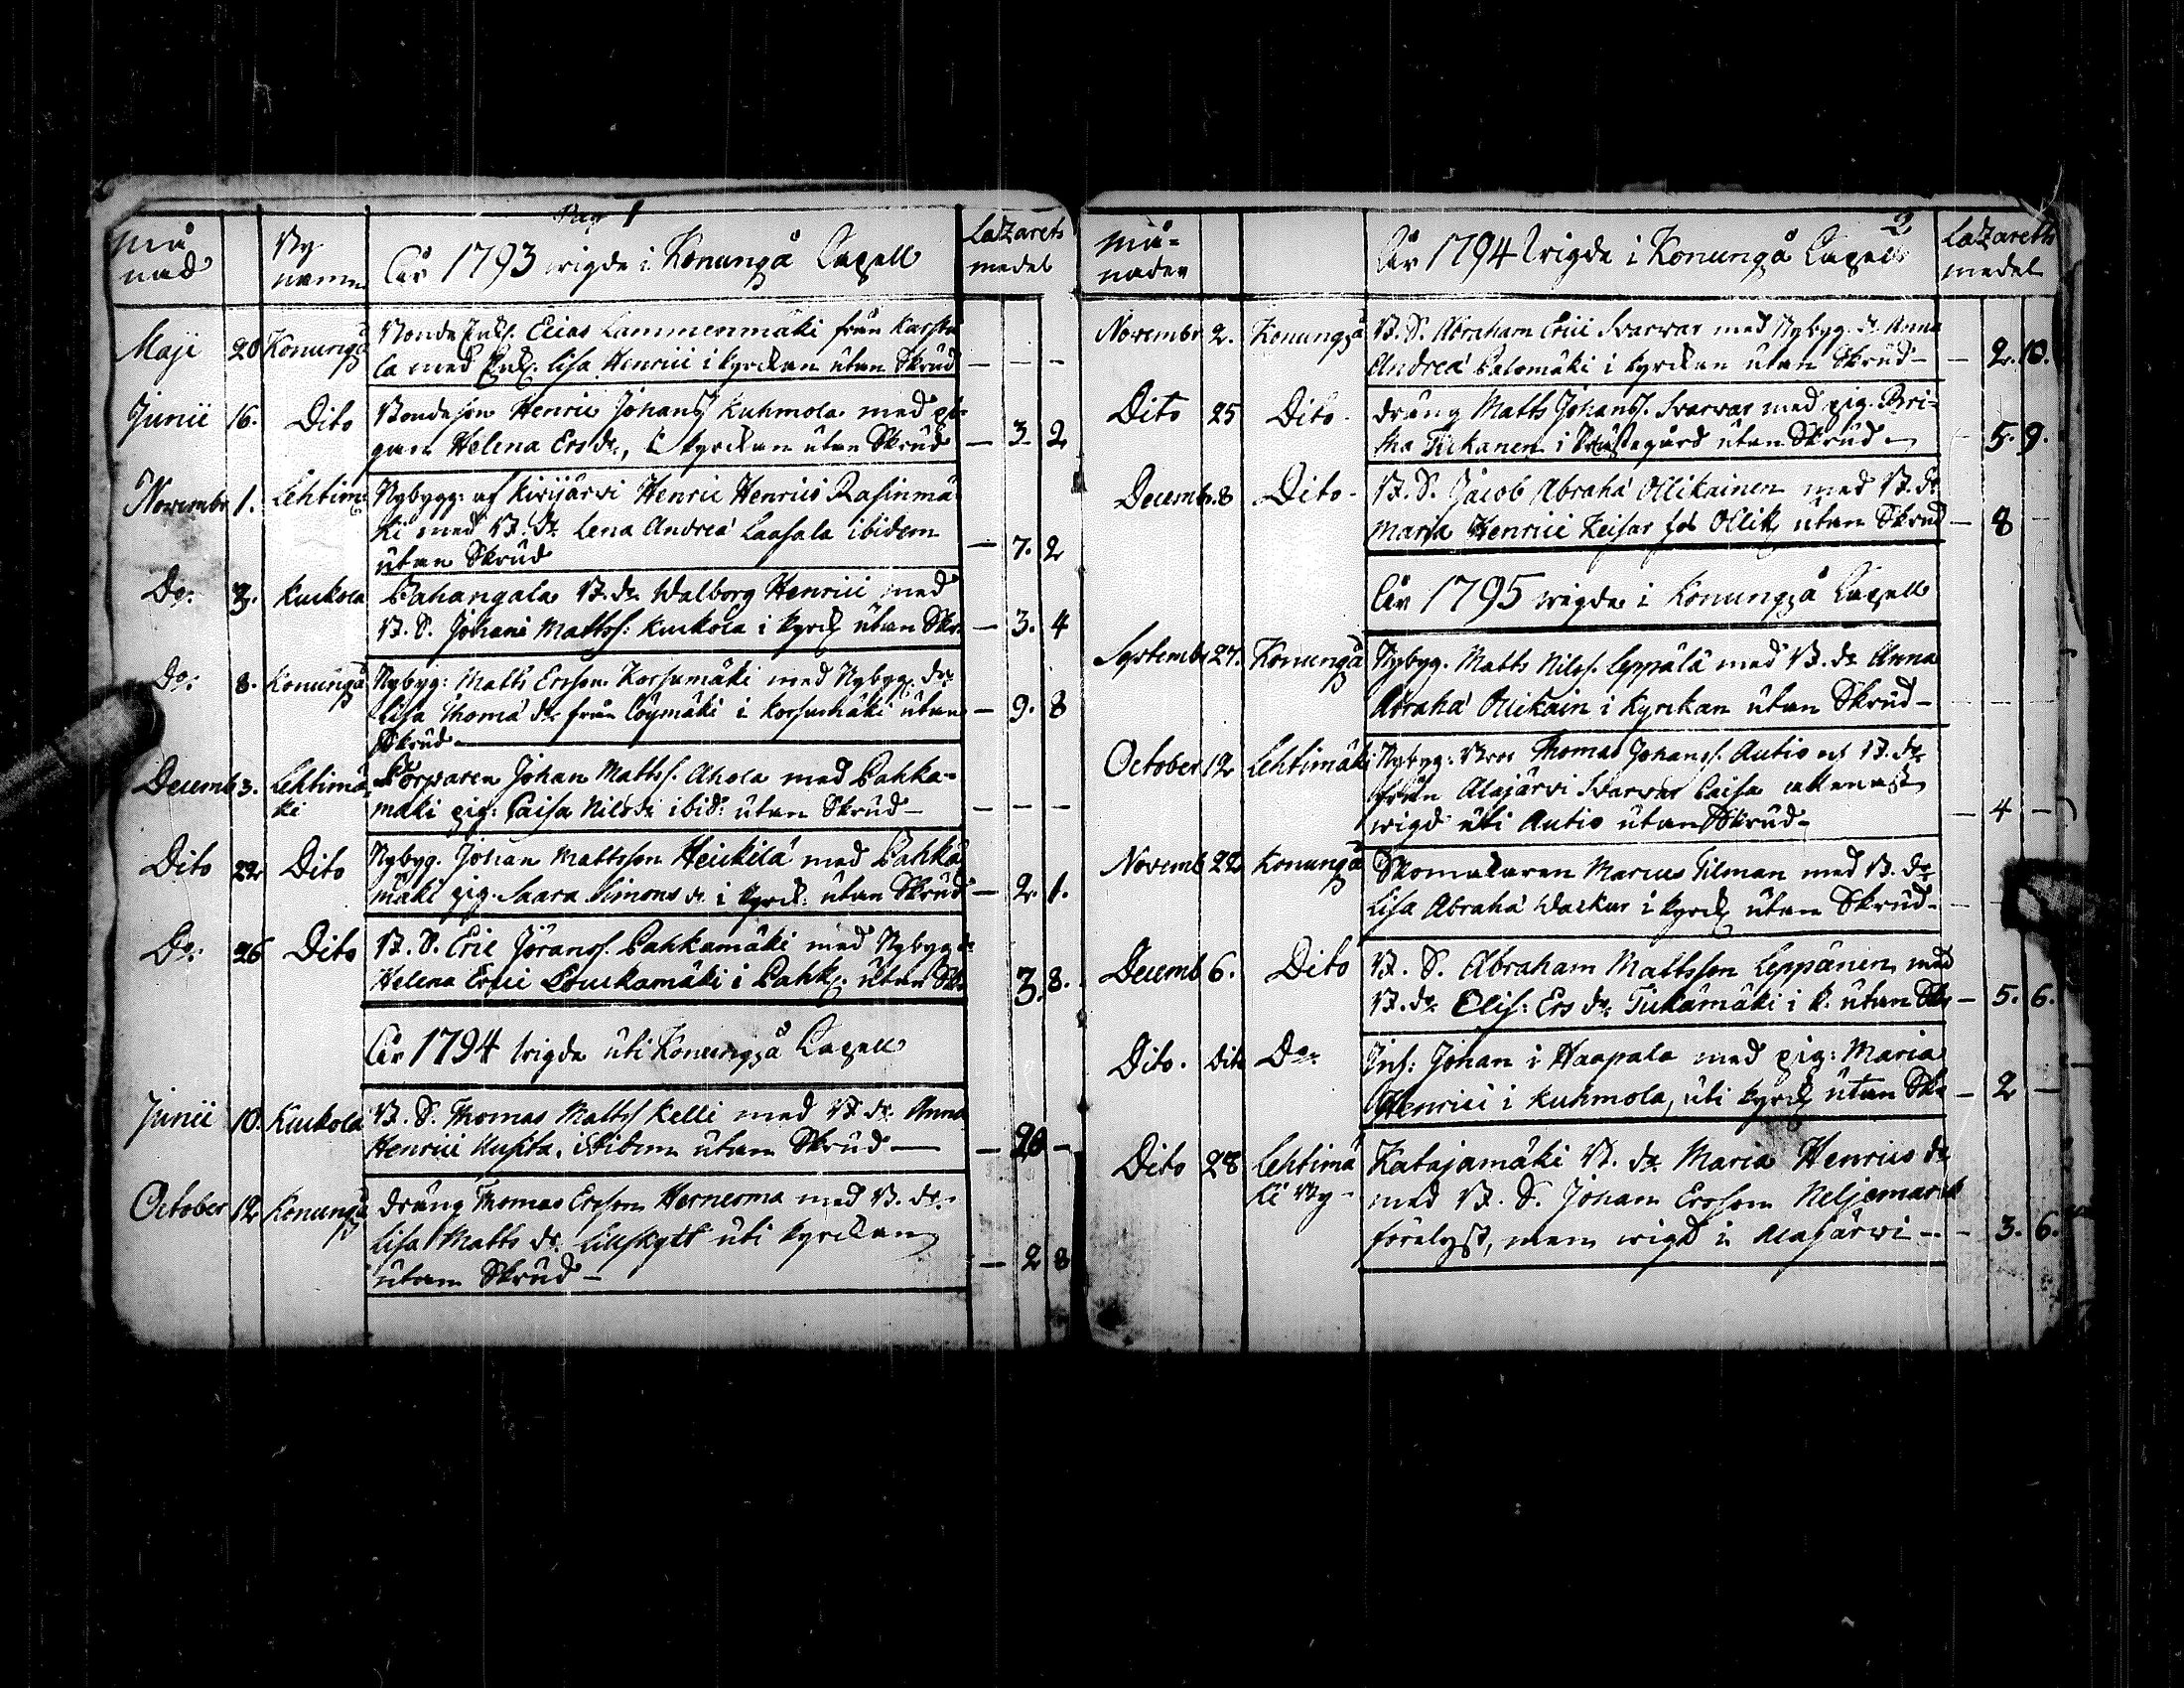 Pag 1
Må
nad
By
namn
År 1793 wigde i Konungå Capell
Lazarets
medel
Maji 20 Konungå Bonde Enkl. Elias Lammenmäki från Karstu
la med Enk. Lisa Henrici i kyrckan utan Skrud — — —
Junii 16. Dito Bondeson Henric Johans Kuhmola med pi-
gan Helena Ersdr, i kyrckan utan Skrud — 3 2
Novembr 1. Lehtimä Nybygg: af Kivijärvi Henric Henrics Rasinmä
ki med B. dr Lena Andreæ Laasala ibidem
utan Skrud — 7. 2
Do: 3. Kuckola Pahangala B. dr Walborg Henrici med
B. S. Johan Mattss: Kuckola i kyrck utan Skr. — 3. 4
Do: 8. Konungå Nybyg: Matts Ersson Korsumäki med Nybyg. dr
Lisa Thomæ dr från Löymäki i Korsumäki utan — 9. 8
Skrud
Decemb 3. Lehtimä
ki
Torparen Johan Mattss. Ahola med Pahka-
mäki pig: Caisa Nilsdr ibid: utan Skrud — — —
Dito 22 Dito Nybyg. Johan Mattsson Heickilä med Pahka
mäki pig. Saara Simons dr i kyrck: utan Skrud — 2. 1.
Do: 26 Dito B. S. Eric Jöranss. Pahkamäki med Nybyg dr
Helena Erici Louckamäki i Pahk. utan Skr. 3. 8.
År 1794 wigde uti Konungå Capell
Junii 10. Kuckola B. S. Thomas Mattss Kelli med B. dr Anna
Henrici Kusita, ibidem utan Skrud — — 20 —
October 12 Konungå Dräng Thomas Ersson Hernesma med B. dr
Lisa Matts dr Lillskytt uti kyrckan
utan Skrud — — 2 8
2
Må-
nader
År 1794 Wigde i Konungå Capell
Lazarets
medel
Novembr 2. Konungå B. S. Abraham Erici Svarvar med Nybyg. dr Anna
Andreæ Palomäki i kyrckan utan Skrud — — 2. 10.
Dito 25 Dito Dräng Matts Johanss. Svarvar med pig. Bri-
tha Tukanen i Prästegård utan Skrud — 5. 9.
Decembr. 8 Dito B. S. Jacob Abrahæ Ollikainen med B. dr
Maria Henrici Keisar hos Ollik utan Skrud — 8 —
År 1795 wigde i Konungå Capell
Septemb 27. Konungå Nybyg. Matts Nilss. Leppälä med B. dr Anna
Abrahæ Ollikain i Kyrckan utan Skrud — — —
October 12 Lehtimäki Nybyg: Bror Thomas Johanss. Autio och B. dr
från Alajärvi Svarvar Caisa
wigd uti Autio utan Skrud — — 4 —
Novemb 22 Konungå Skomakaren Marcus Tilman med B. dr
Lisa Abrahæ Wackur i kyrck utan Skrud — —
Decemb 6. Dito B. S. Abraham Mattsson Leppänen med
B. dr Elis: Ers dr Tukamäki i k. utan Skr — 5. 6.
Dito. Dito Do: Inh: Johan i Haapala med pig: Maria
Henrici i Kuhmola, uti kyrck utan Skr — 2 —
Dito 28 Lehtimä
ki By
Katajamäki B. dr Maria Henrics dr
med B. S. Johan Ersson Neljemarck
förelyst, men wigd i Alajärvi — — 3. 6.